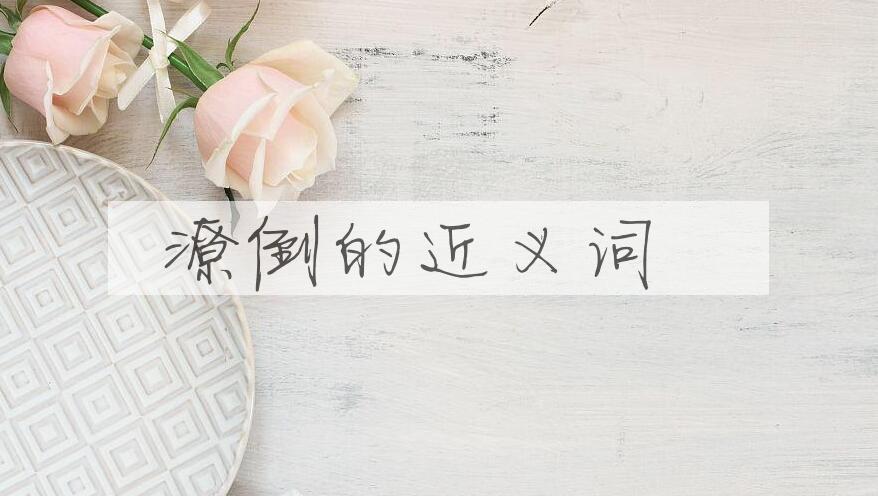 潦倒的近义词